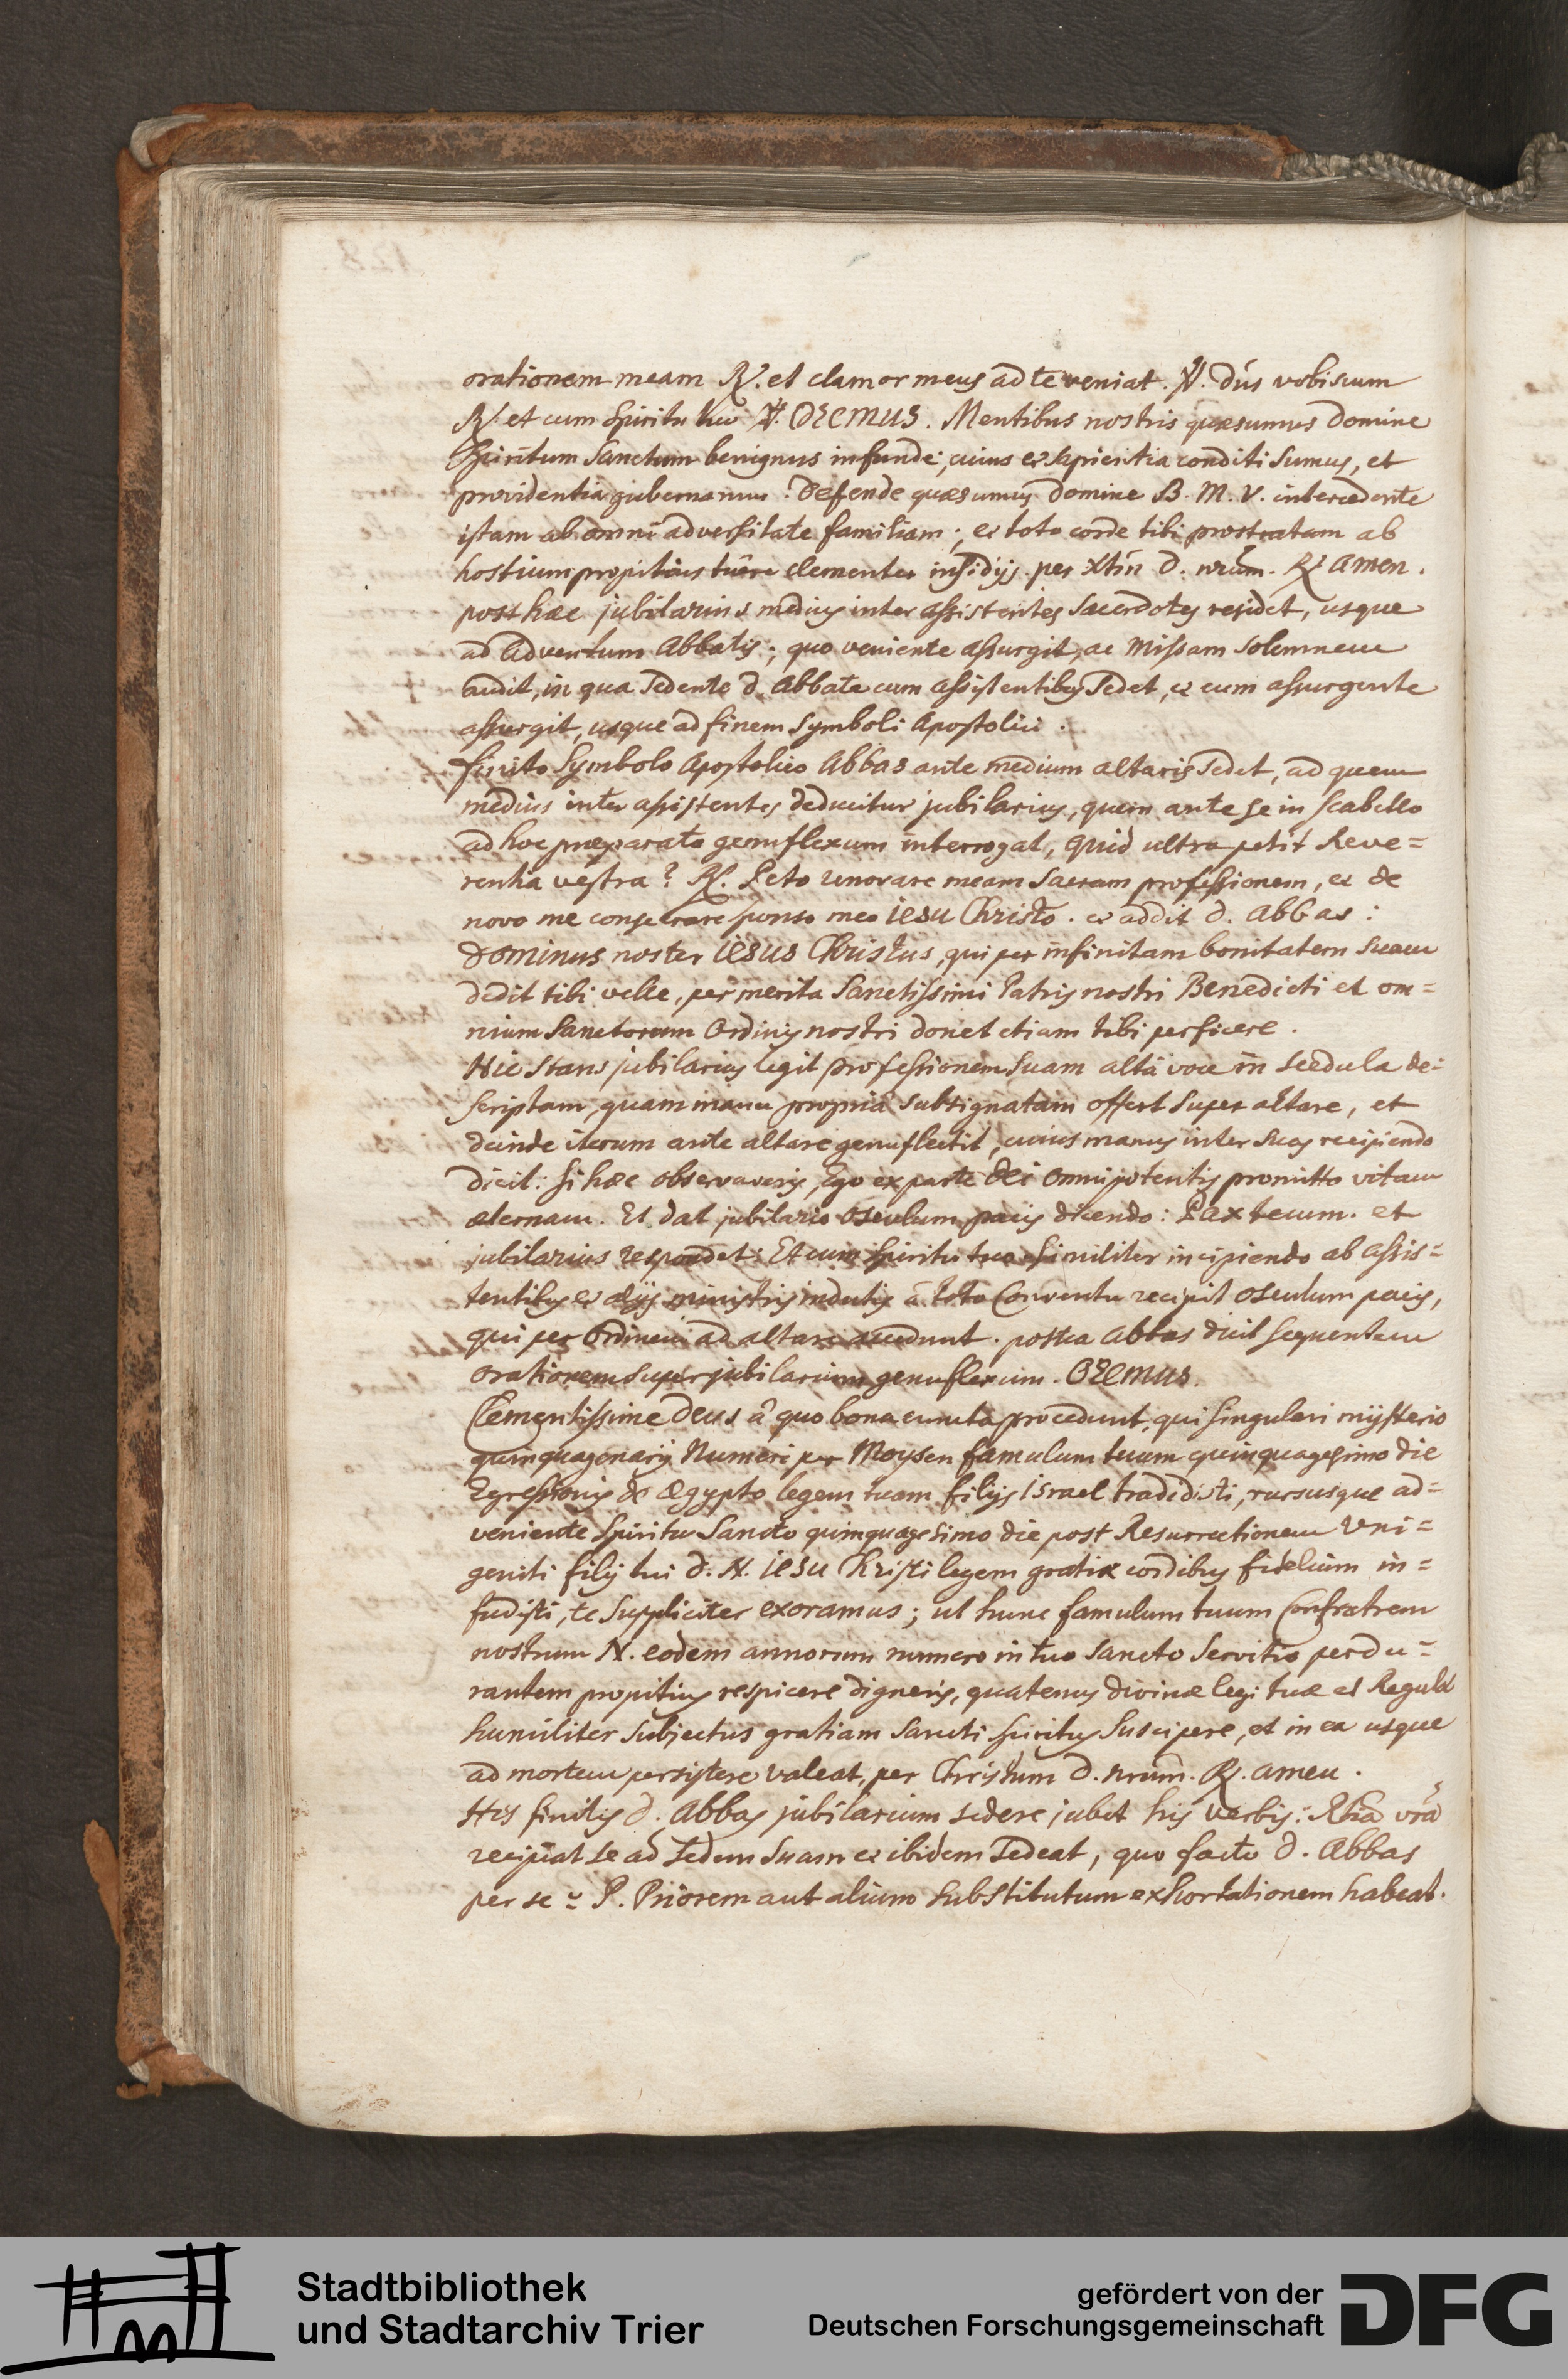 orationem meam ℟. et clamor meus ad te veniat. ℣. Dn̄s vobiscum
℟. et cum spiritu tuo ℣. Oremus. Mentibus nostris quæsumus Domine
Spiritum Sanctum benignus infunde, cuius et sapientia conditi sumus, et
providentia gubernamur. Defende quæsumus Domine B. M. V. intercedente
istam ab omni adversitate familiam; et toto corde tibi prostratam ab
hostium propitius tuere clementer insidijs. per Xtm̄ D. nrūm. ℟ Amen.
post hæc jubilarius medius inter assistentes Sacerdotes residet, usque
ad adventum Abbatis; quo veniente assurgit, ac Missam solemnem
audit, in qua sedente d. Abbate cum assistentibus sedet, et eum assurgente
assurgit, usque ad finem Symboli Apostolici.
finito Symbolo Apostolico Abbas ante medium altaris sedet, ad quem
medius inter assistentes deducitur jubilarius, quem ante se in scabello
ad hoc præparato genuflexum interrogat, Quid ultra petit Reve=
rentia vestra? ℟. Peto renovare meam Sacram professionem, et de
novo me consecrare sponso meo Iesu Christo. et addit d. Abbas:
Dominus noster Iesus Christus, qui per infinitam bonitatem suam
dedit tibi velle, per merita Sanctissimi Patris nostri Benedicti et om=
nium Sanctorum Ordinis nostri donet etiam tibi perficere.
Hic stans jubilarius legit professionem suam altâ voce in scedula de=
scriptam, quam manu propriâ subsignatam offert super altare, et
deinde iterum ante altare genuflectit, cuius manus inter suas recipiendo
dicit: Si hæc observaveris, Ego ex parte Dei Omnipotentis promitto vitam
æternam. Et dat jubilario osculum pacis dicendo: Pax tecum. et
jubilarius respondet: Et cum spiritu tuo similiter incipiendo ab assis=
tentibus et alijs ministris indutis â toto Conventu recipit osculum pacis,
qui per Ordinem ad altare accedunt. postea Abbas dicit sequentem
orationem super jubilarium genuflexum. Oremus.
Clementissime Deus â quo bona cuncta procedunt, qui singulari mysterio
quinquagenarij Numeri per Moysen famulum tuum quinquagesimo die
Egressionis de Ægypto legem tuam filijs Israel tradidisti, rursusque ad=
veniente Spiritu Sancto quinquagesimo die post Resurrectionem Uni=
geniti filij tui d. N. Iesu Christi legem gratiæ cordibus fidelium in=
fudisti, te suppliciter exoramus; ut hunc famulum tuum Confratrem
nostrum N. eodem annorum numero in tuo sancto servitio perdu=
rantem propitius respicere digneris, quatenus divinæ legi tuæ et Regulæ
humiliter subjectus gratiam Sancti Spiritus suscipere, et in ea usque
ad mortem persistere valeat, per Christum D. nrum̄. ℟. amen.
His finitis d. Abbas jubilarium sedere jubet his verbis: Rtiā vrā
recipiat se ad sedem suam et ibidem sedeat, quo facto d. Abbas
per se P. Priorem aut alium substitutum exhortationem habeat.
Stadtbibliothek
und Stadtarchiv Trier
gefördert von der
Deutschen Forschungsgemeinschaft
DFG